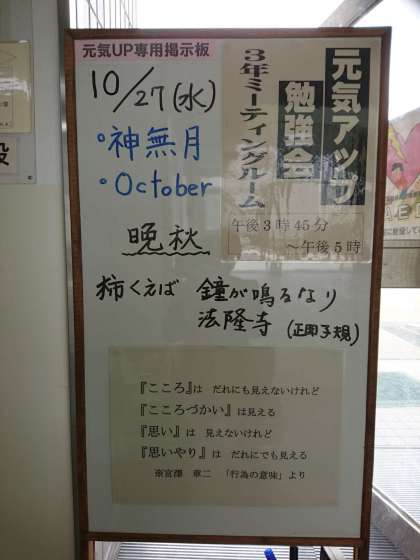 元気UP専用掲示板
10/27(水)
・神無月
・October
元気アップ
勉強会
3年ミーティングルーム
午後3時45分
～午後5時
晩秋
柿くえば 鐘が鳴るなり
法隆寺 (正岡子規)
『こころ』は だれにも見えないけれど
『こころづかい』は見える
『思い』は 見えないけれど
『思いやり』は だれにでも見える
※宮澤 章二 「行為の意味」より